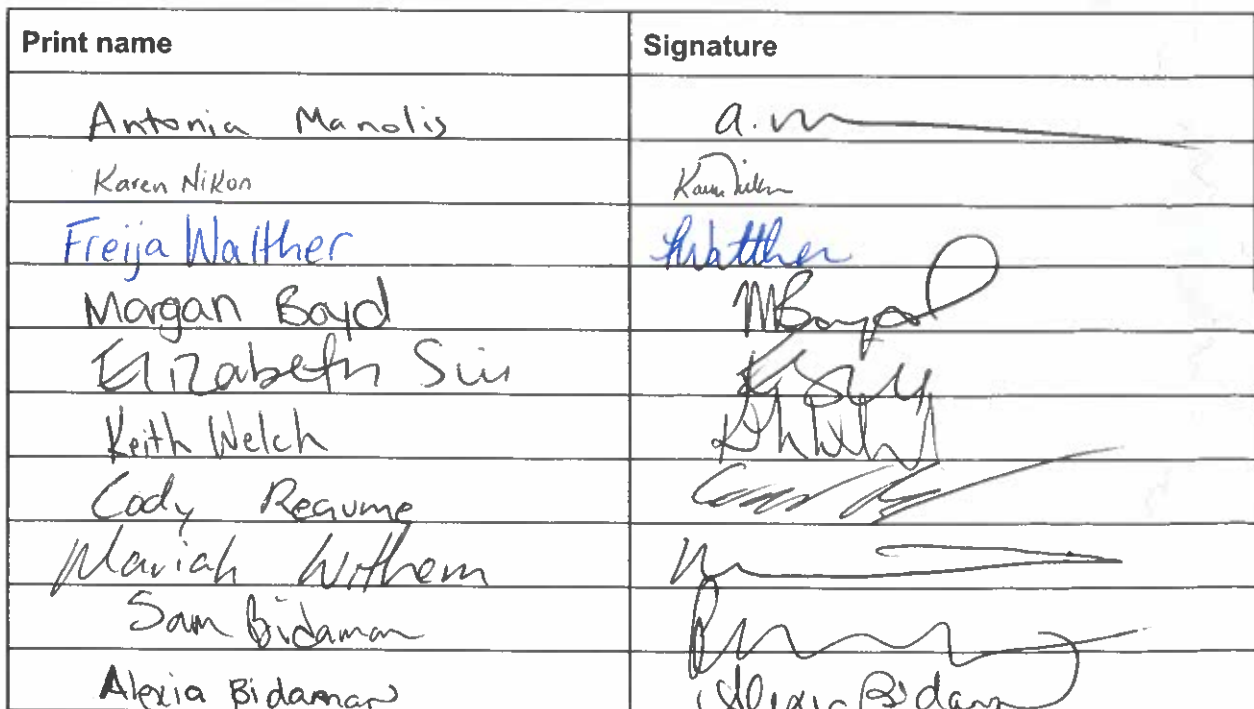 Print name Signature
Antonia Manolis a.m
Karen Nikon Karen Nikon
Freija Walther FWalther
Morgan Boyd MBoyd
Elizabeth Siu
Keith Welch
Cody Reaume
Mariah Withem
Sam Bidaman
Alexia Bidaman Alexia Bidaman